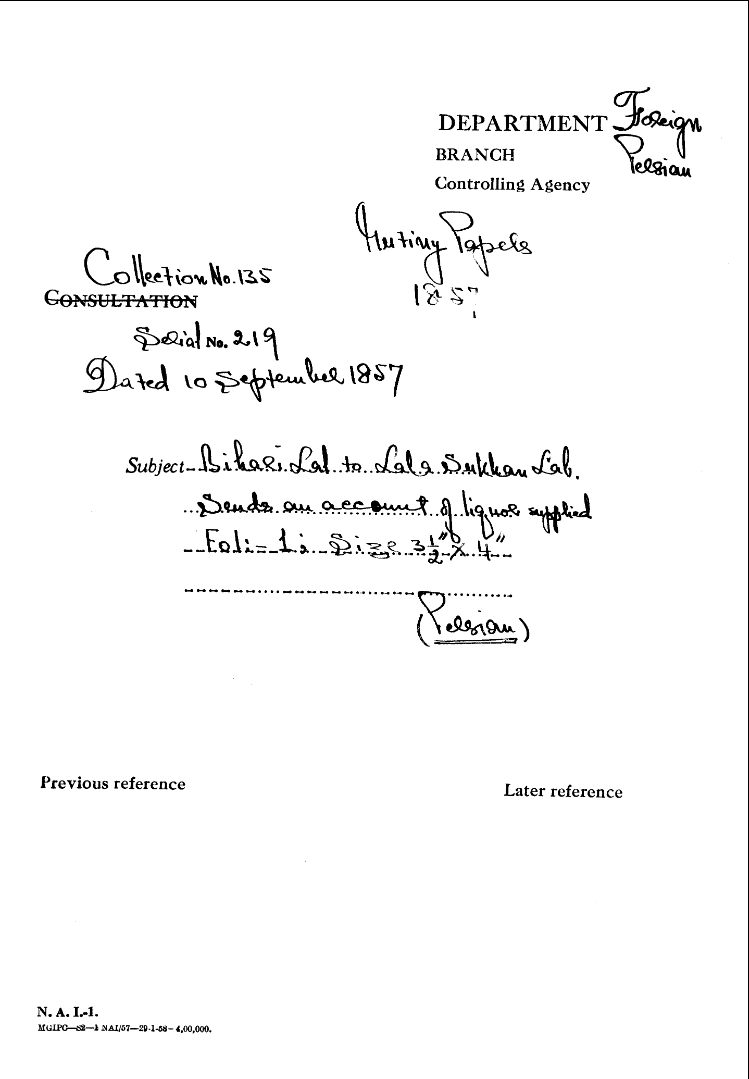 DEPARTMENT Foreign
BRANCH Persian
Controlling Agency
Mutiny Papers
1857
Collection No. 135
CONSULTATION
Serial No. 219
Dated 10 September 1857
Subject Bihari Lal to Lala Sukhan Lal.
Sends an account of liquor supplied
Foli= 1; Size 3½" X 4"
(Persian)
Previous reference
Later reference
N. A. I.-1.
MGIPC—S2—1 NAI/57—29-1-58—4,00,000.